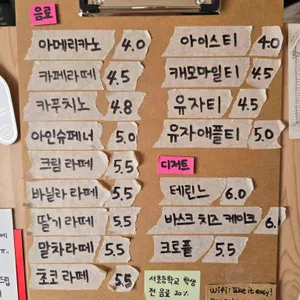 음료
아메리카노 4.0
카페라떼 4.5
카푸치노 4.8
아인슈페너 5.0
크림 라떼 5.5
바닐라 라떼 5.5
딸기 라떼 5.5
말차 라떼 5.5
초코 라떼 5.5
아이스티 4.0
캐모마일티 4.5
유자티 4.5
유자애플티 5.0
디저트
테린느 6.0
바스크 치즈 케이크 6.
크로플 5.5
서초등학교 학생
전 음료 20%
WiFi: take it easy!